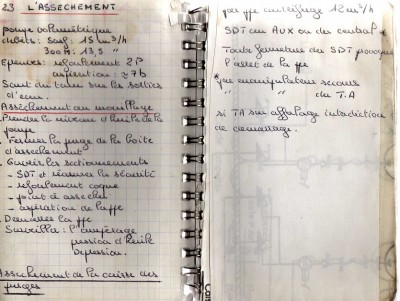 23 L'ASSECHEMENT
pompe volumétrique
débits: surf: 15 m3/h
300 m: 13,5 "
épreuves: refoulement 2P
aspiration: ≈ 7b
Sont du tam sur les sorties
d'eau.
Assèchement au mouillage
Prendre le niveau d'huile de la
pompe
. Fermer la purge de la boîte
d'assèchement
- Ouvrir les sectionnements
- SDT et réarmer la sécurité
- refoulement coque
- point à assécher
- aspiration de la ppe
. Démarrer la ppe
Surveiller: l'ampérage
pression d'huile
Dépression.
Assèchement de la caisse des
purges
par ppe centrifuge 12 m3/h
SDT au AUX ou du central
Toute fermeture des SDT provoque
l'arrêt de la ppe
par manipulateur secours
" " du T.A
si TA sur affalage interdiction
de démarrage.